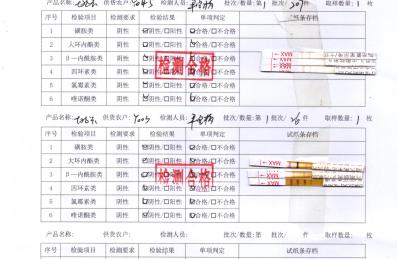 产品名称: 供货农户: Y045 检测人员: 批次/数量: 第 1 批次/ 20 件 取样数量: 1 枚
序号 检验项目 检测要求 检验结果 单项判定 试纸条存档
1 磺胺类 阴性 ☑阴性/☐阳性 ☑合格/☐不合格
2 大环内酯类 阴性 ☑阴性/☐阳性 ☑合格/☐不合格
3 β－内酰胺类 阴性 ☑阴性/☐阳性 ☑合格/☐不合格
4 四环素类 阴性 ☑阴性/☐阳性 ☑合格/☐不合格
5 氯霉素类 阴性 ☑阴性/☐阳性 ☑合格/☐不合格
6 喹诺酮类 阴性 ☑阴性/☐阳性 ☑合格/☐不合格
检测合格
MAX
MAX
产品名称: 供货农户: Y005 检测人员: 批次/数量: 第 1 批次/ 26 件 取样数量: 1 枚
序号 检验项目 检测要求 检验结果 单项判定 试纸条存档
1 磺胺类 阴性 ☑阴性/☐阳性 ☑合格/☐不合格
2 大环内酯类 阴性 ☑阴性/☐阳性 ☑合格/☐不合格
3 β－内酰胺类 阴性 ☑阴性/☐阳性 ☑合格/☐不合格
4 四环素类 阴性 ☑阴性/☐阳性 ☑合格/☐不合格
5 氯霉素类 阴性 ☑阴性/☐阳性 ☑合格/☐不合格
6 喹诺酮类 阴性 ☑阴性/☐阳性 ☑合格/☐不合格
检测合格
MAX
MAX
产品名称: 供货农户: 检测人员: 批次/数量: 第 批次/ 件 取样数量: 枚
序号 检验项目 检测要求 检验结果 单项判定 试纸条存档